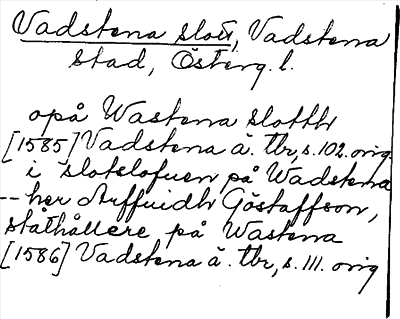 Vadstena slott, Vadstena
stad, Österg. l.
opå Wastena slotth
[1585] Vadstena ä. tbr, s. 102. orig
i slotslofuen på Wadstena
-- her Arffuidh Göstaffson,
ståthållere på Wastena
[1586] Vadstena ä. tbr, s. 111. orig